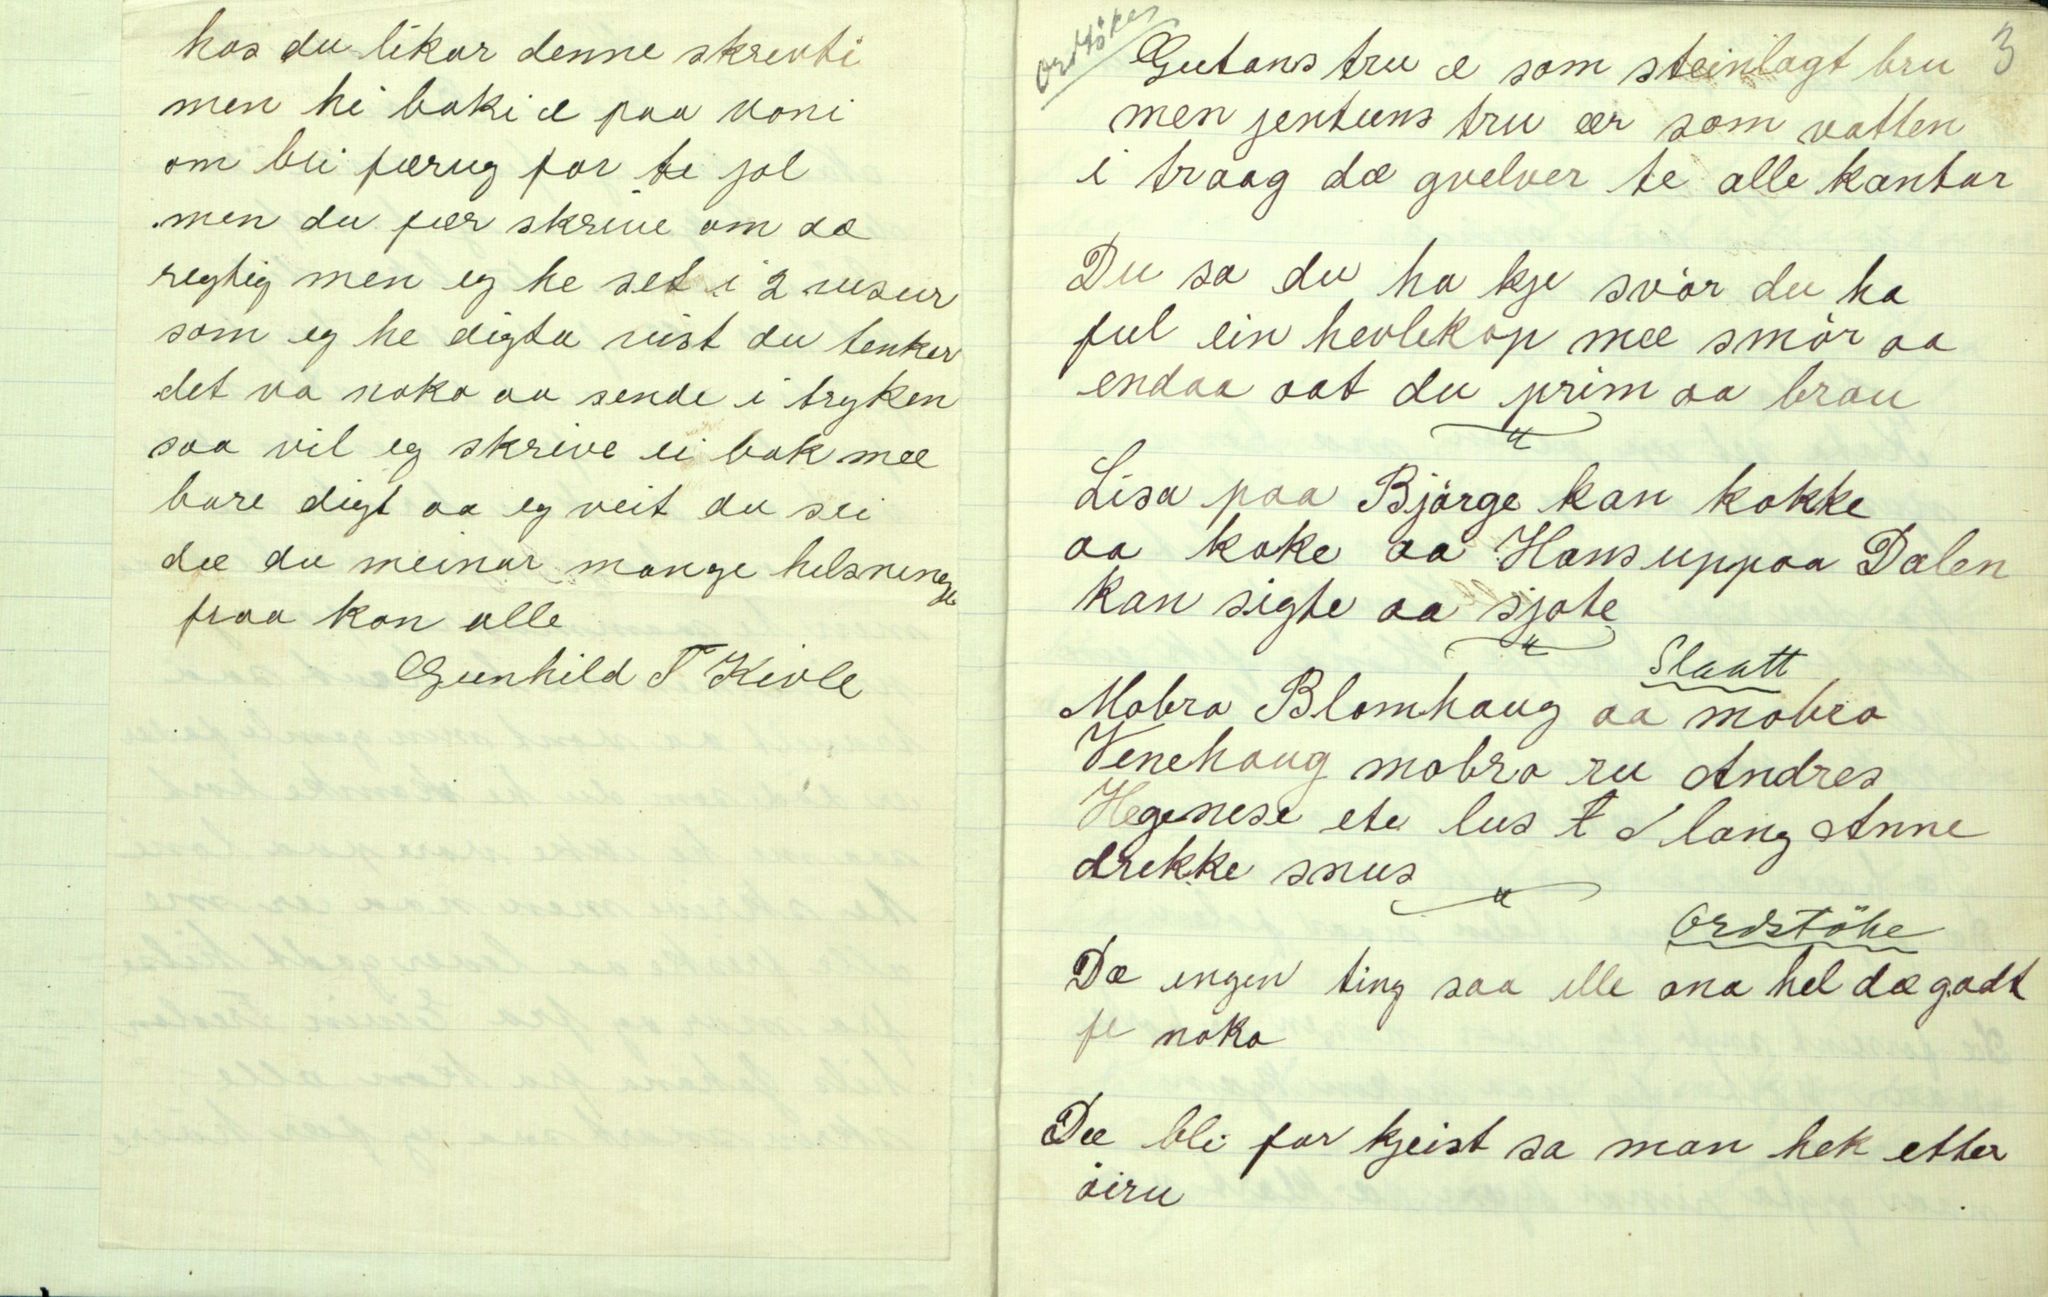 hos du likar denne skrevti
men hi boki æ paa voni
om bli færug for te jol
men du fær skrive om dæ
regtig men eg he set i 2 visur
som eg he digta vist du tenker
det va noko aa sende i tryken
saa vil eg skrive ei bok mæ
bare digt aa eg veit du sei
dæ du meinar mange helsninge
fraa kon alle
Gunhild T Kivle
Ordtöker
3
Gutans tru æ som steinlagt bru
men jentuns tru ær som vatten
i traag dæ gvelver te alle kantar
Du sa du ha kje svör du ha
ful ein hevlekop mæ smör aa
endaa aat du prim aa brau
Lisa paa Björge kan kokke
aa koke aa Hans uppaa Dalen
kan sigte aa sjote
Slaatt
Mobro Blomhaug aa mobro
Venehaug mobro ru Andres
Hegenese ete lus lang Anne
drekke snus
Ordstöke
Dæ engen ting saa ille ona hel dæ godt
fe noko
Dæ bli for kjeist sa man hek etter
öiru